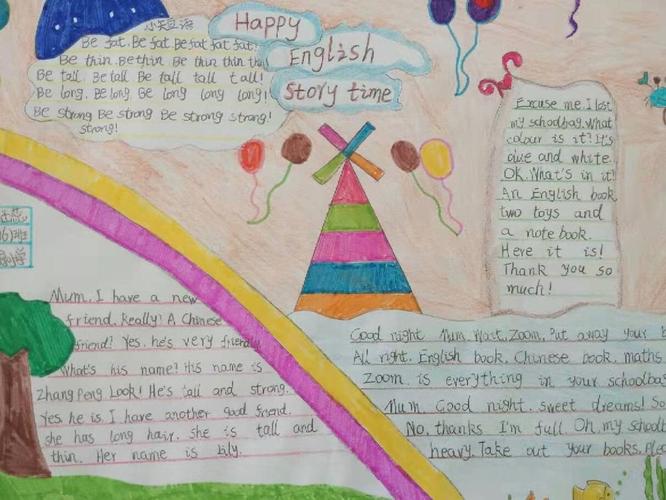 Be fat. Be fat Be fat fat fat!
Be thin. Be thin Be thin thin
Be tall. Be tall Be tall tall tall!
Be long. Be long. Be long long long!
Be strong Be strong Be strong strong!
strong!
Happy
English
Story time
Excuse me I lost
my schoolbag. What
colour is it? It's
blue and white.
OK. What's in it!
An English book
two toys and
a note book.
Here it is!
Thank you so
much!
Mum. I have a new
friend. Really? A Chinese
friend? Yes. he's very friendly
What's his name? His name is
Zhang Peng Look! He's tall and strong.
Yes. he is. I have another good friend.
She has long hair. She is tall and
thin. Her name is
Good night Mum. Wait, Zoom. Put away your
All right. English book. Chinese book. maths
Zoom. is everything in your
Mum. Good night. sweet dreams! So
No. thanks I'm full Oh. my
heavy. Take out your books.